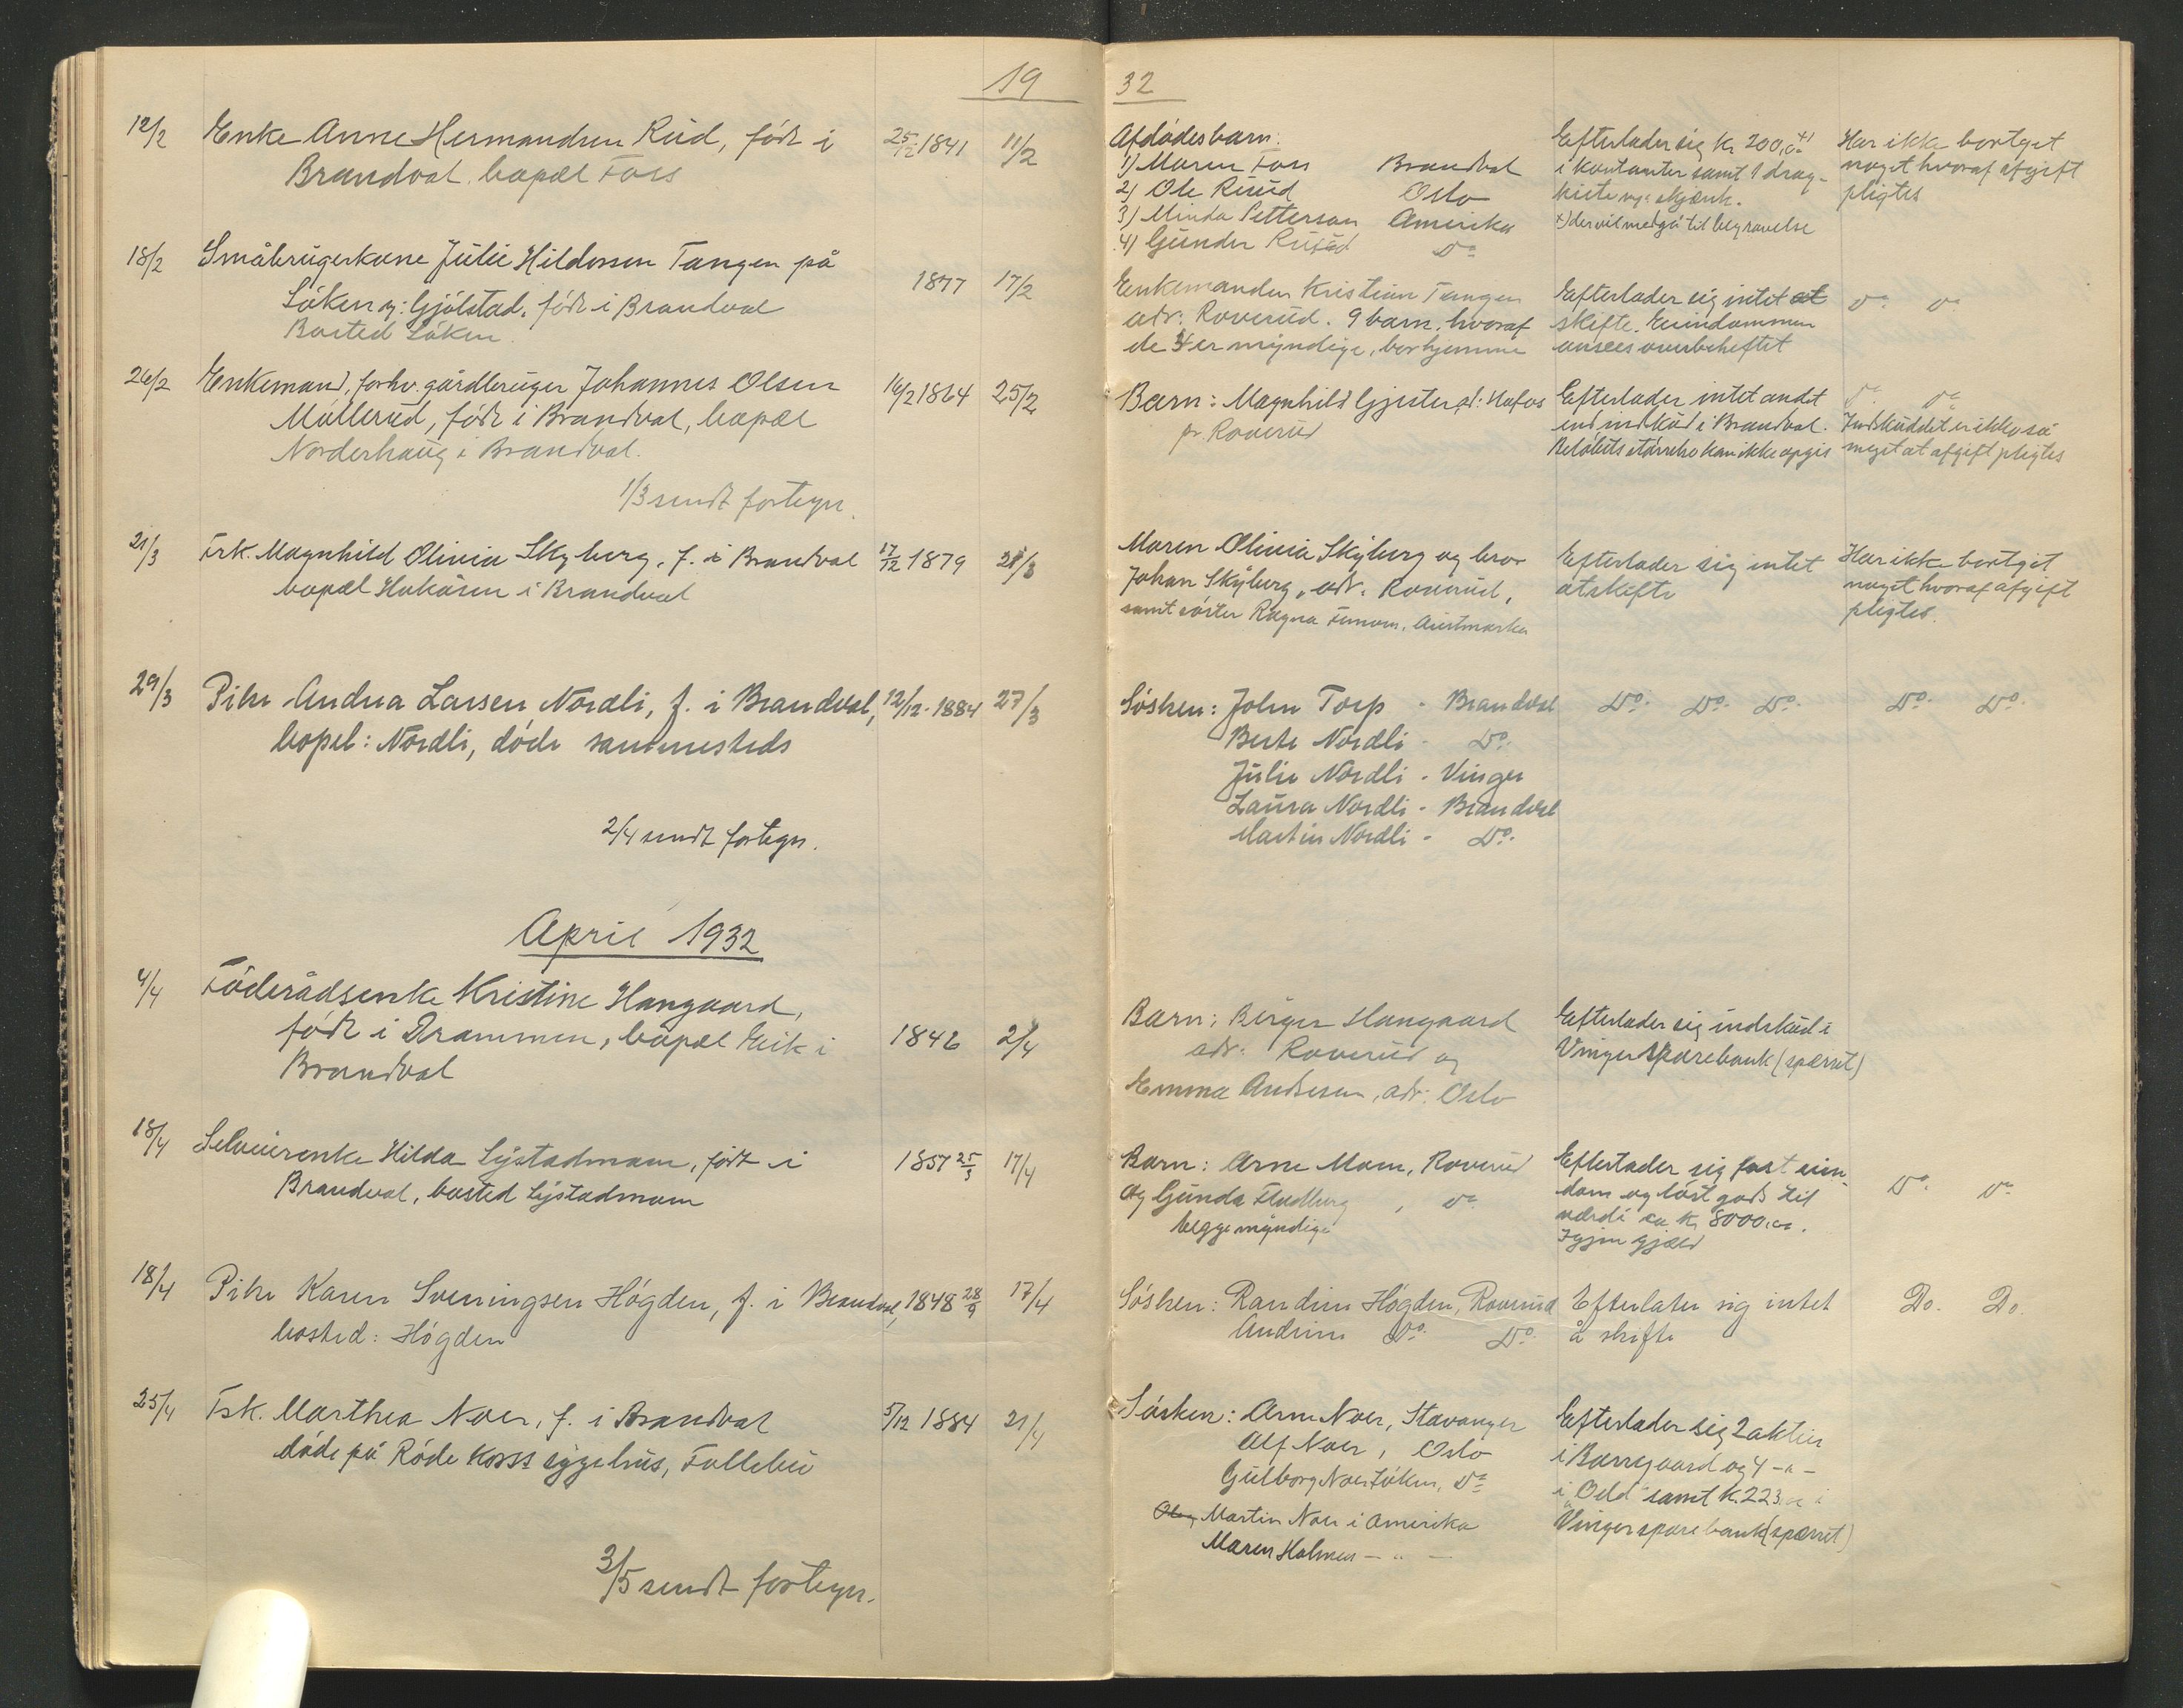 19 32
12/2 Enke Anne Hermandsen Rud, født i 25/12 1841 11/2
Brandval. bopæl Foss
18/2 Småbrugerkone Julie Hildonsen Tangen på
Løken og: Gjølstad, født i Brandval 1877 17/2
Bosted Løken
26/2 Enkemand, forhv. gårdbruger Johannes Olsen 16/2 1864 25/2
Møllerud, født i Brandval, bopæl
Norderhaug i Brandval.
1/3 sendt fortegn.
21/3 Frk. Magnhild Olivia Skyberg, f. i Brandval 17/12 1879 21/3
bopæl Hokåsen i Brandval
29/3 Pike Andrea Larsen Nordli, f. i Brandval, 12/12-1884 27/3
bopel: Nordli, døde sammesteds
2/4 sendt fortegn.
April 1932
4/4 Føderådsenke Kristine Hangaard,
født i Drammen, bopæl Eik i 1846 2/4
Brandval
18/4 Selveierenke Hilda Lystadmoen, født i 1857 25/3 17/4
Brandval, bosted Lystadmoen
18/4 Pike Karen Sveningsen Høgden, f. i Brandval, 1848 28/9 17/4
bosted: Høgden
25/4 Frk. Marthea Noer, f. i Brandval 5/12 1884 21/4
døde på Røde Korss sygehus, Follebu
3/5 sendt fortegn.
Afdødes barn:
1) Maren Foss Brandval
2) Ole Ruud Oslo
3) Minda Petterson Amerika
4) Gunder Ruud Do
Efterlader sig kr 200,00 x)
i kontanter samt 1 drag-
kiste og 1 skjænk.
x) der vil medgå til begravelse
Har ikke bortget
noget hvoraf afgift
pligtes
Enkemanden Kristian Tangen
adr: Roverud. 9 barn, hvoraf
de 4 er myndige, bor hjemme
Efterlader sig intet at
skifte. Eiendommen
ansees overbeheftet
Do Do
Barn: Magnhild Gjester, ad: Hofos
pr. Roverud
Efterlader intet andet
end indskud i Brandval.
Beløbets størrelse kan ikke opgis
Do Do
Indskuddet er ikke så
meget at afgift pligtes
Maren Olivia Skyberg og bror
Johan Skyberg, adr. Roverud,
samt søster Ragna, Austmarka
Efterlader sig intet
at skifte
Har ikke bortgit
noget hvoraf afgift
pligtes.
Søsken: John Torp - Brandval Do. Do. Do. Do. Do.
Berte Nordli - Do.
Julie Nordli - Vinger
Laura Nordli - Brandval
Martin Nordli - Do.
Barn: Birger Hangaard
adr: Roverud og
Emma Andersen, adr: Oslo
Efterlader sig indskud i
Vinger Sparebank (spærret)
Barn: Arne Moen, Roverud
Og Gunda Fladberg, Do
begge myndige
Efterlader sig fast eien-
dom og løst gods til
værdi ca. kr 8000,00.
Igjen gjæld
Do. Do
Søsken: Randine Høgden, Roverud
Andrine Do. Do.
Efterlater sig intet
å skifte
Do. Do.
Søsken: Arne Noer, Stavanger
Alf Noer, Oslo
Gulborg Noer Løken, Do
Martin Noer i Amerika
Maren Holmen - " -
Efterlader sig 2 aktier
i Borregaard og 4 -"-
i "Odd" samt kr. 223.00 i
Vinger sparebank (spærret)